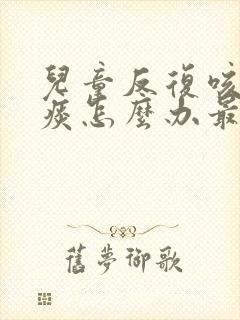 兒童反復咳
痰怎麼办最
舊夢御歌